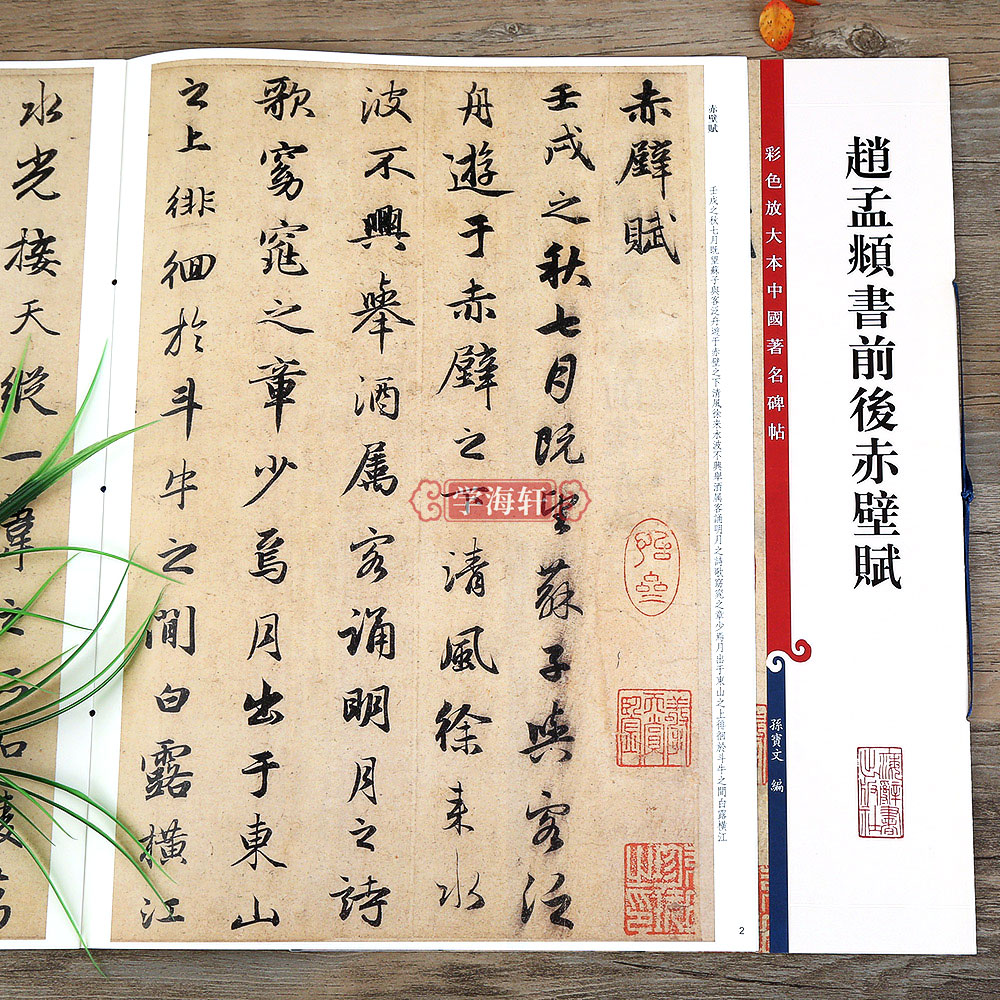 趙孟頫書前後赤壁賦
彩色放大本中國著名碑帖
孫寶文 編
赤壁賦
壬戌之秋七月既望蘇子與客泛舟遊于赤壁之下清風徐来水波不興舉酒属客誦明月之詩歌窈窕之章少焉月出于東山之上徘徊於斗牛之間白露橫江
赤壁賦
壬戌之秋七月既望蘇子與客泛
舟遊于赤壁之下清風徐来水
波不興舉酒属客誦明月之詩
歌窈窕之章少焉月出于東山
之上徘徊於斗牛之間白露橫江
水光接天縱一葦之
2
学海轩